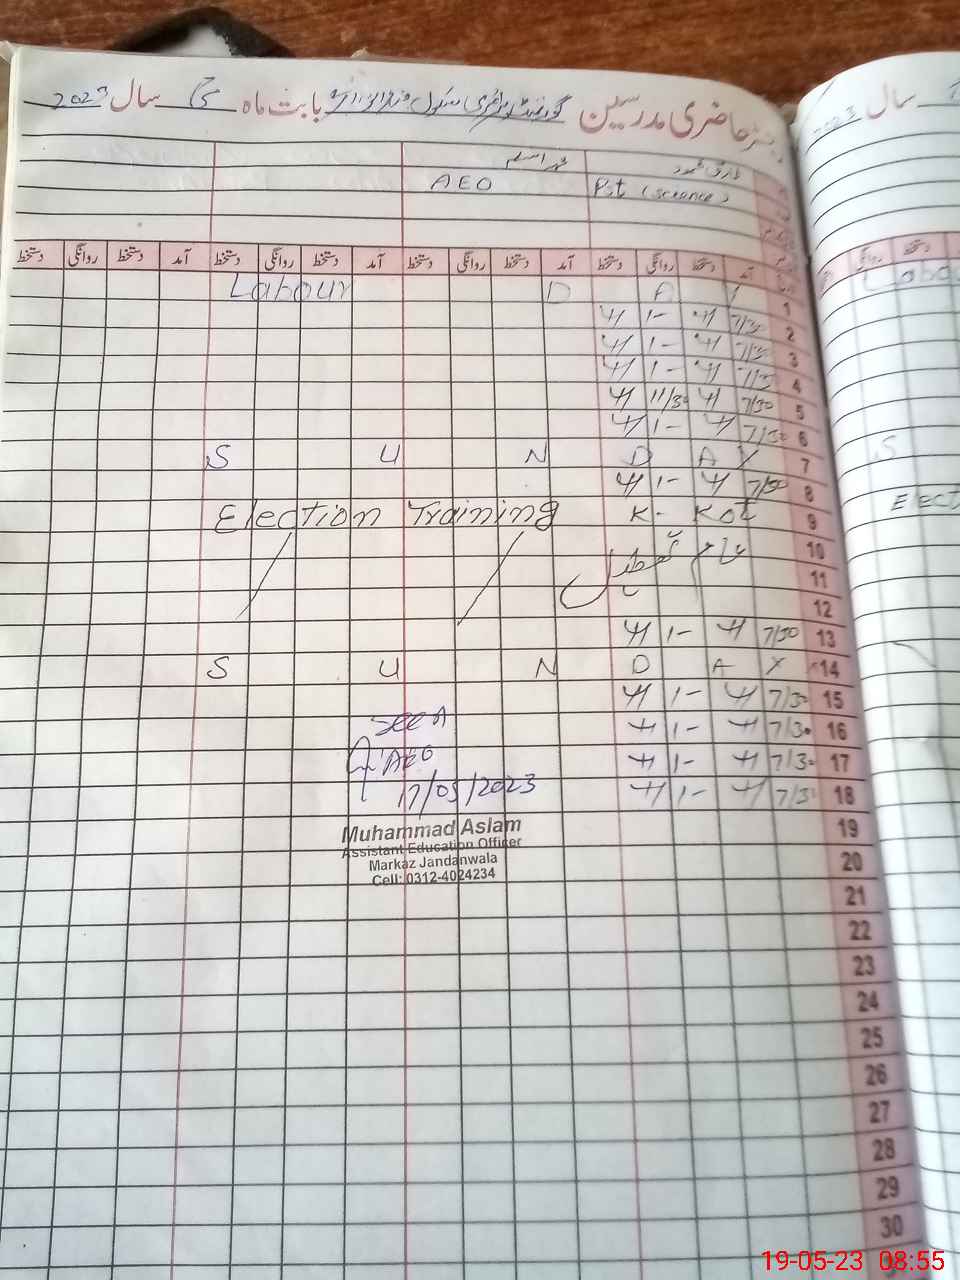 رجسٹر حاضری مدرسین گورنمنٹ پرائمری سکول بابت ماہ مئی سال 2023
طارق محمود محمد اسلم
Pst (science) AEO
آمد دستخط روانگی دستخط آمد دستخط روانگی دستخط آمد دستخط روانگی دستخط آمد دستخط روانگی دستخط
Labour D A Y 1
7/30 1- 2
7/30 1- 3
7/30 1- 4
7/30 11/30 5
7/30 1- 6
S U N D A Y 7
7/30 1- 8
Election Training K- Kot 9
10
عام تعطیل 11
12
7/30 1- 13
S U N D A Y 14
7/30 1- 15
7/30 1- 16
7/30 1- 17
7/30 1- 18
Seen
AEO
17/05/2023
Muhammad Aslam
Assistant Education Officer
Markaz Jandanwala
Cell: 0312-4024234
19
20
21
22
23
24
25
26
27
28
29
30
سال 2023
روانگی دستخط
Labou
S
Elect
19-05-23 08:55